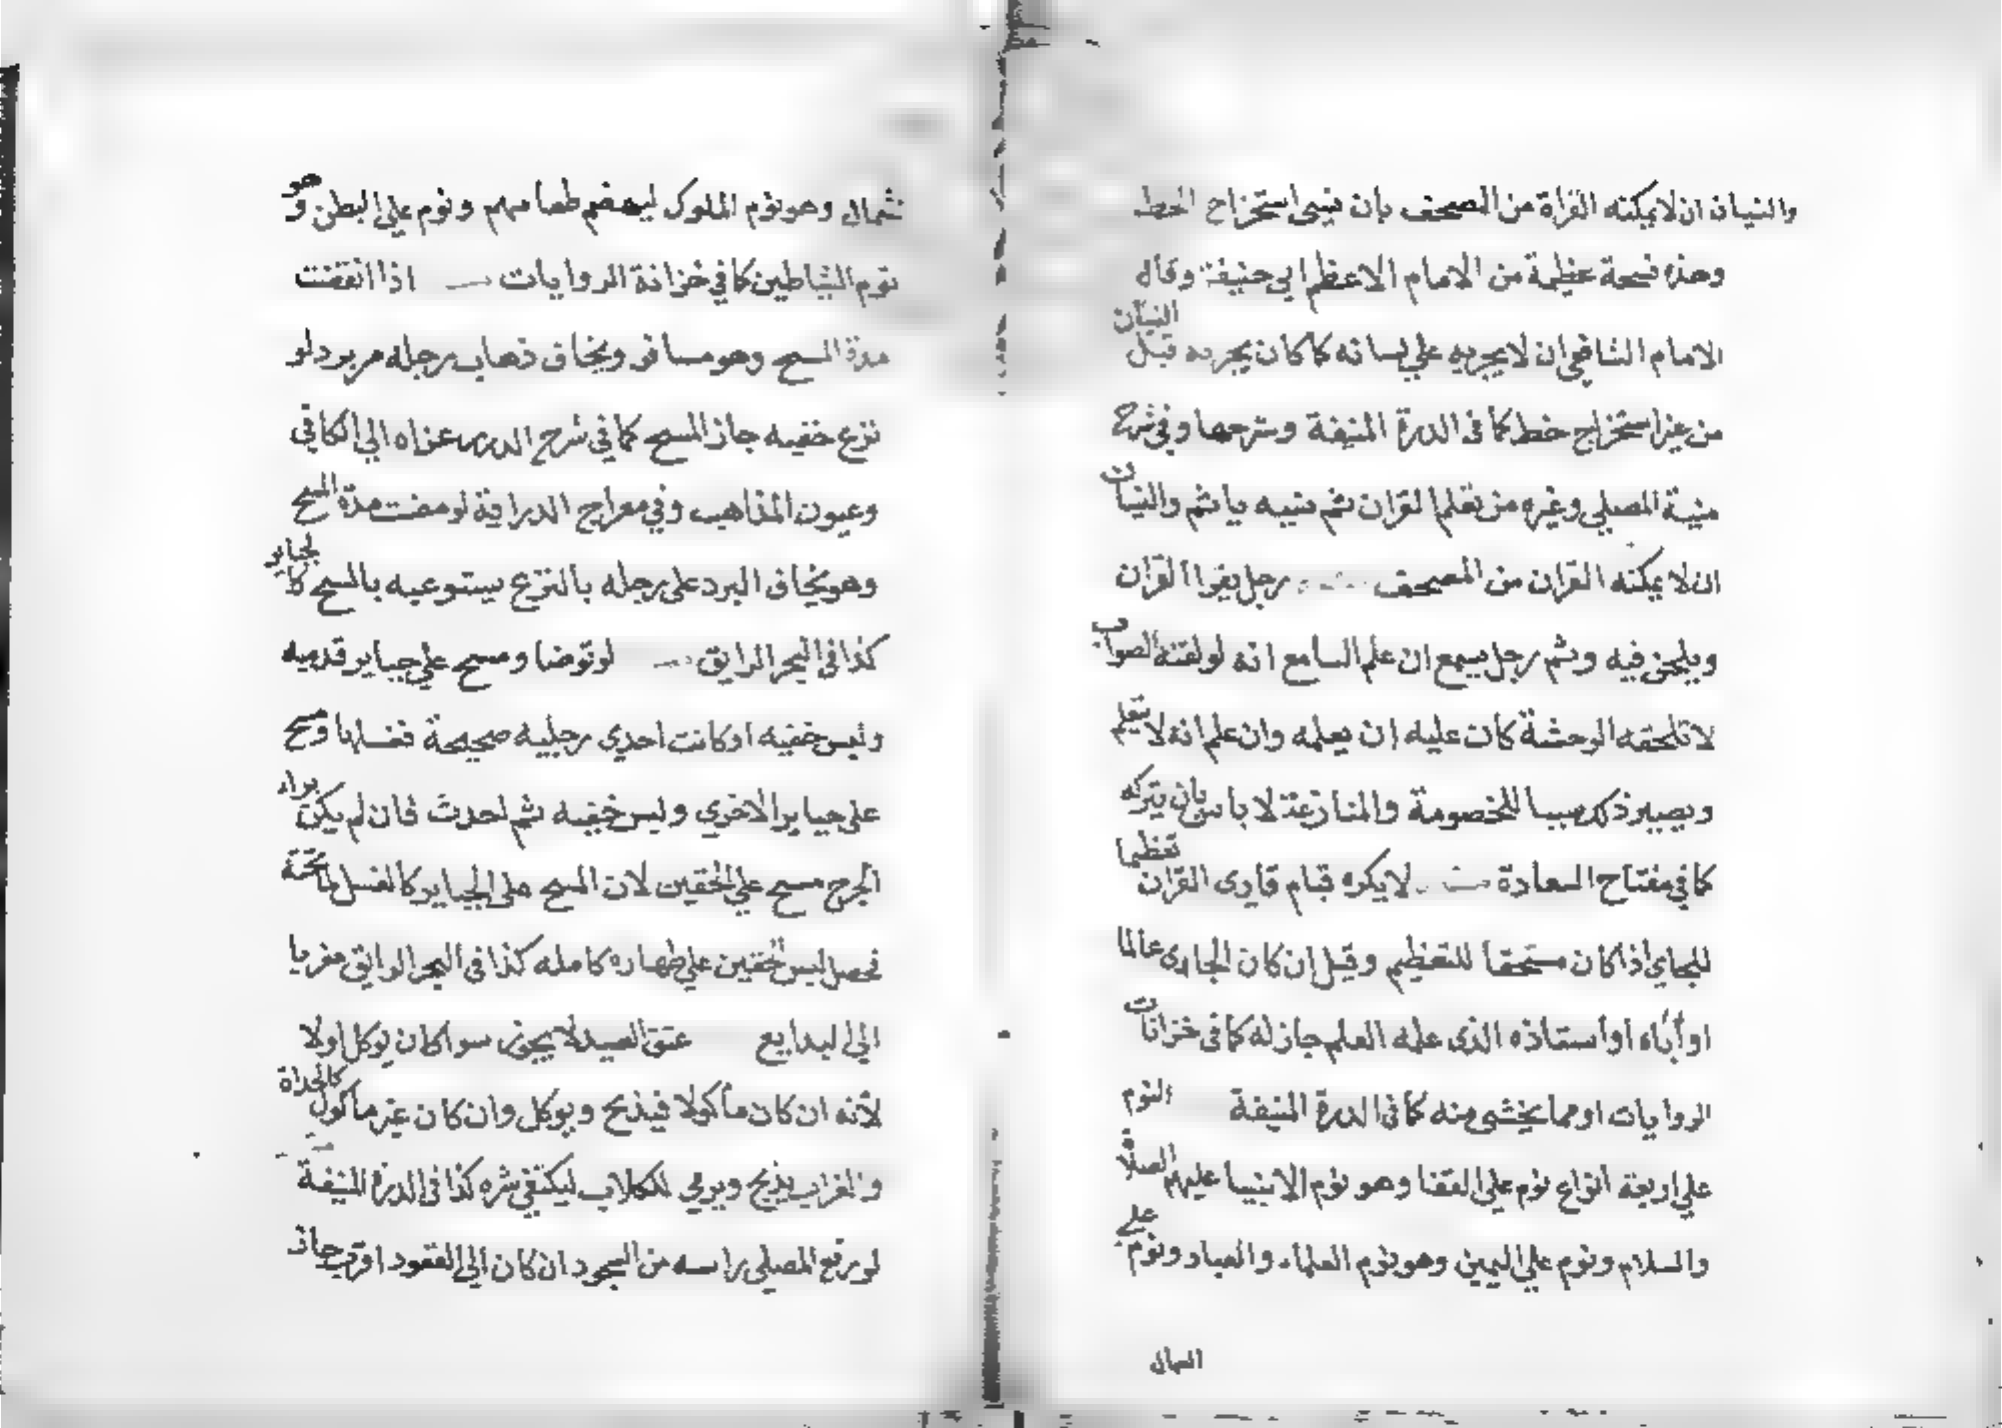 والنسيان ان لا يمكنه القراة من المصحف بان ينسى استخراج الخط
وهذه فسحة عظيمة من الامام الاعظم ابي حنيفة وقال
الامام الشافعي ان لا يجريه علي لسانه كما كان يجريه قبل النسيان
من غير استخراج خط كما في الدرة المنيفة وشرحها وفي شرح
منية المصلي وغيره من تعلم القران ثم نسيه ياثم والنسيان
ان لا يمكنه القران من المصحف رجل يقرا القران
ويلحن فيه وثم رجل يسمع ان علم السامع انه لو لقنه الصواب
لا تلحقه الوحشة كان عليه ان يعلمه وان علم انه لا يتعلم
ويصير ذلك سببا للخصومة والمنازعة لا باس بان يتركه
كما في مفتاح السعادة لا يكره قيام قارى القران تعظيما
للجاي اذا كان مستحقا للتعظيم وقيل ان كان الجاءى عالما
او أباه او أستاذه الذى علمه العلم جاز له كما في خزانات
الروايات او مما يخشى منه كما فى الدرة المنيفة النوم
علي اربعة انواع نوم علي القفا وهو نوم الانبيا عليهم الصلاة
والسلام ونوم علي اليمين وهو نوم العلماء والعباد ونوم علي
الشمال
شمال وهو نوم الملوك ليهضم طعامهم ونوم علي البطن وهو
نوم الشياطين كما في خزانة الروايات اذا انقضت
مدة المسح وهو مسافر ويخاف ذهاب رجله من برد لو
نزع خفيه جاز المسح كما في شرح الدرر عزاه الي الكافي
وعيون المذاهب وفي معراج الدراية لو مضت مدة المسح
وهو يخاف البرد على رجله بالنزع يستوعبه بالمسح كالجباير
كذا في البحر الرايق لو توضا ومسح علي جباير قدميه
ولبس خفيه او كانت احدي رجليه صحيحة فغسلها ومسح
على جباير الاخري ولبس خفيه ثم احدث فان لم يكن براء
الجرح مسح علي الخفين لان المسح على الجباير كالغسل لما تحته
فحصل لبس الخفين علي طهاره كامله كذا فى البحر الرايق معزيا
الي البدايع عتق الصيد لا يجوز سوا كان يوكل اولا
لأنه ان كان مأكولا فيذبح ويوكل وان كان غير مأكول كالحداة
والغراب يذبح ويرمي للكلاب ليكتفي شره كذا في الدرة المنيفة
لو رفع المصلي راسه من السجود ان كان الي القعود اقرب جاز